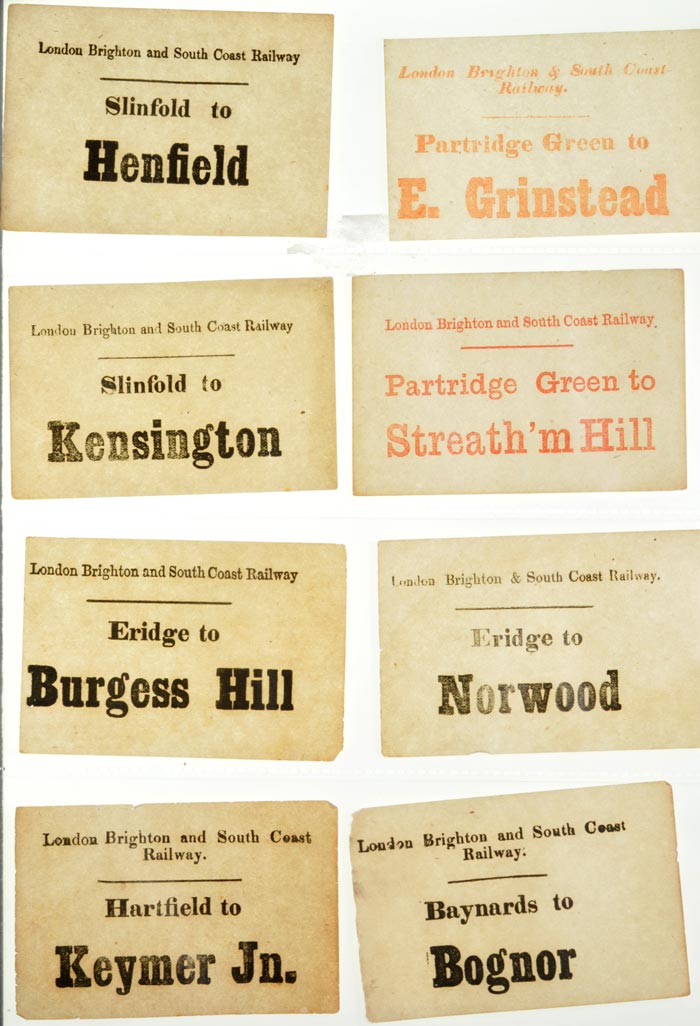 London Brighton and South Coast Railway
Slinfold to
Henfield
London Brighton & South Coast
Railway.
Partridge Green to
E. Grinstead
London Brighton and South Coast Railway
Slinfold to
Kensington
London Brighton and South Coast Railway.
Partridge Green to
Streath'm Hill
London Brighton and South Coast Railway
Eridge to
Burgess Hill
London Brighton & South Coast Railway.
Eridge to
Norwood
London Brighton and South Coast
Railway.
Hartfield to
Keymer Jn.
London Brighton and South Coast
Railway.
Baynards to
Bognor